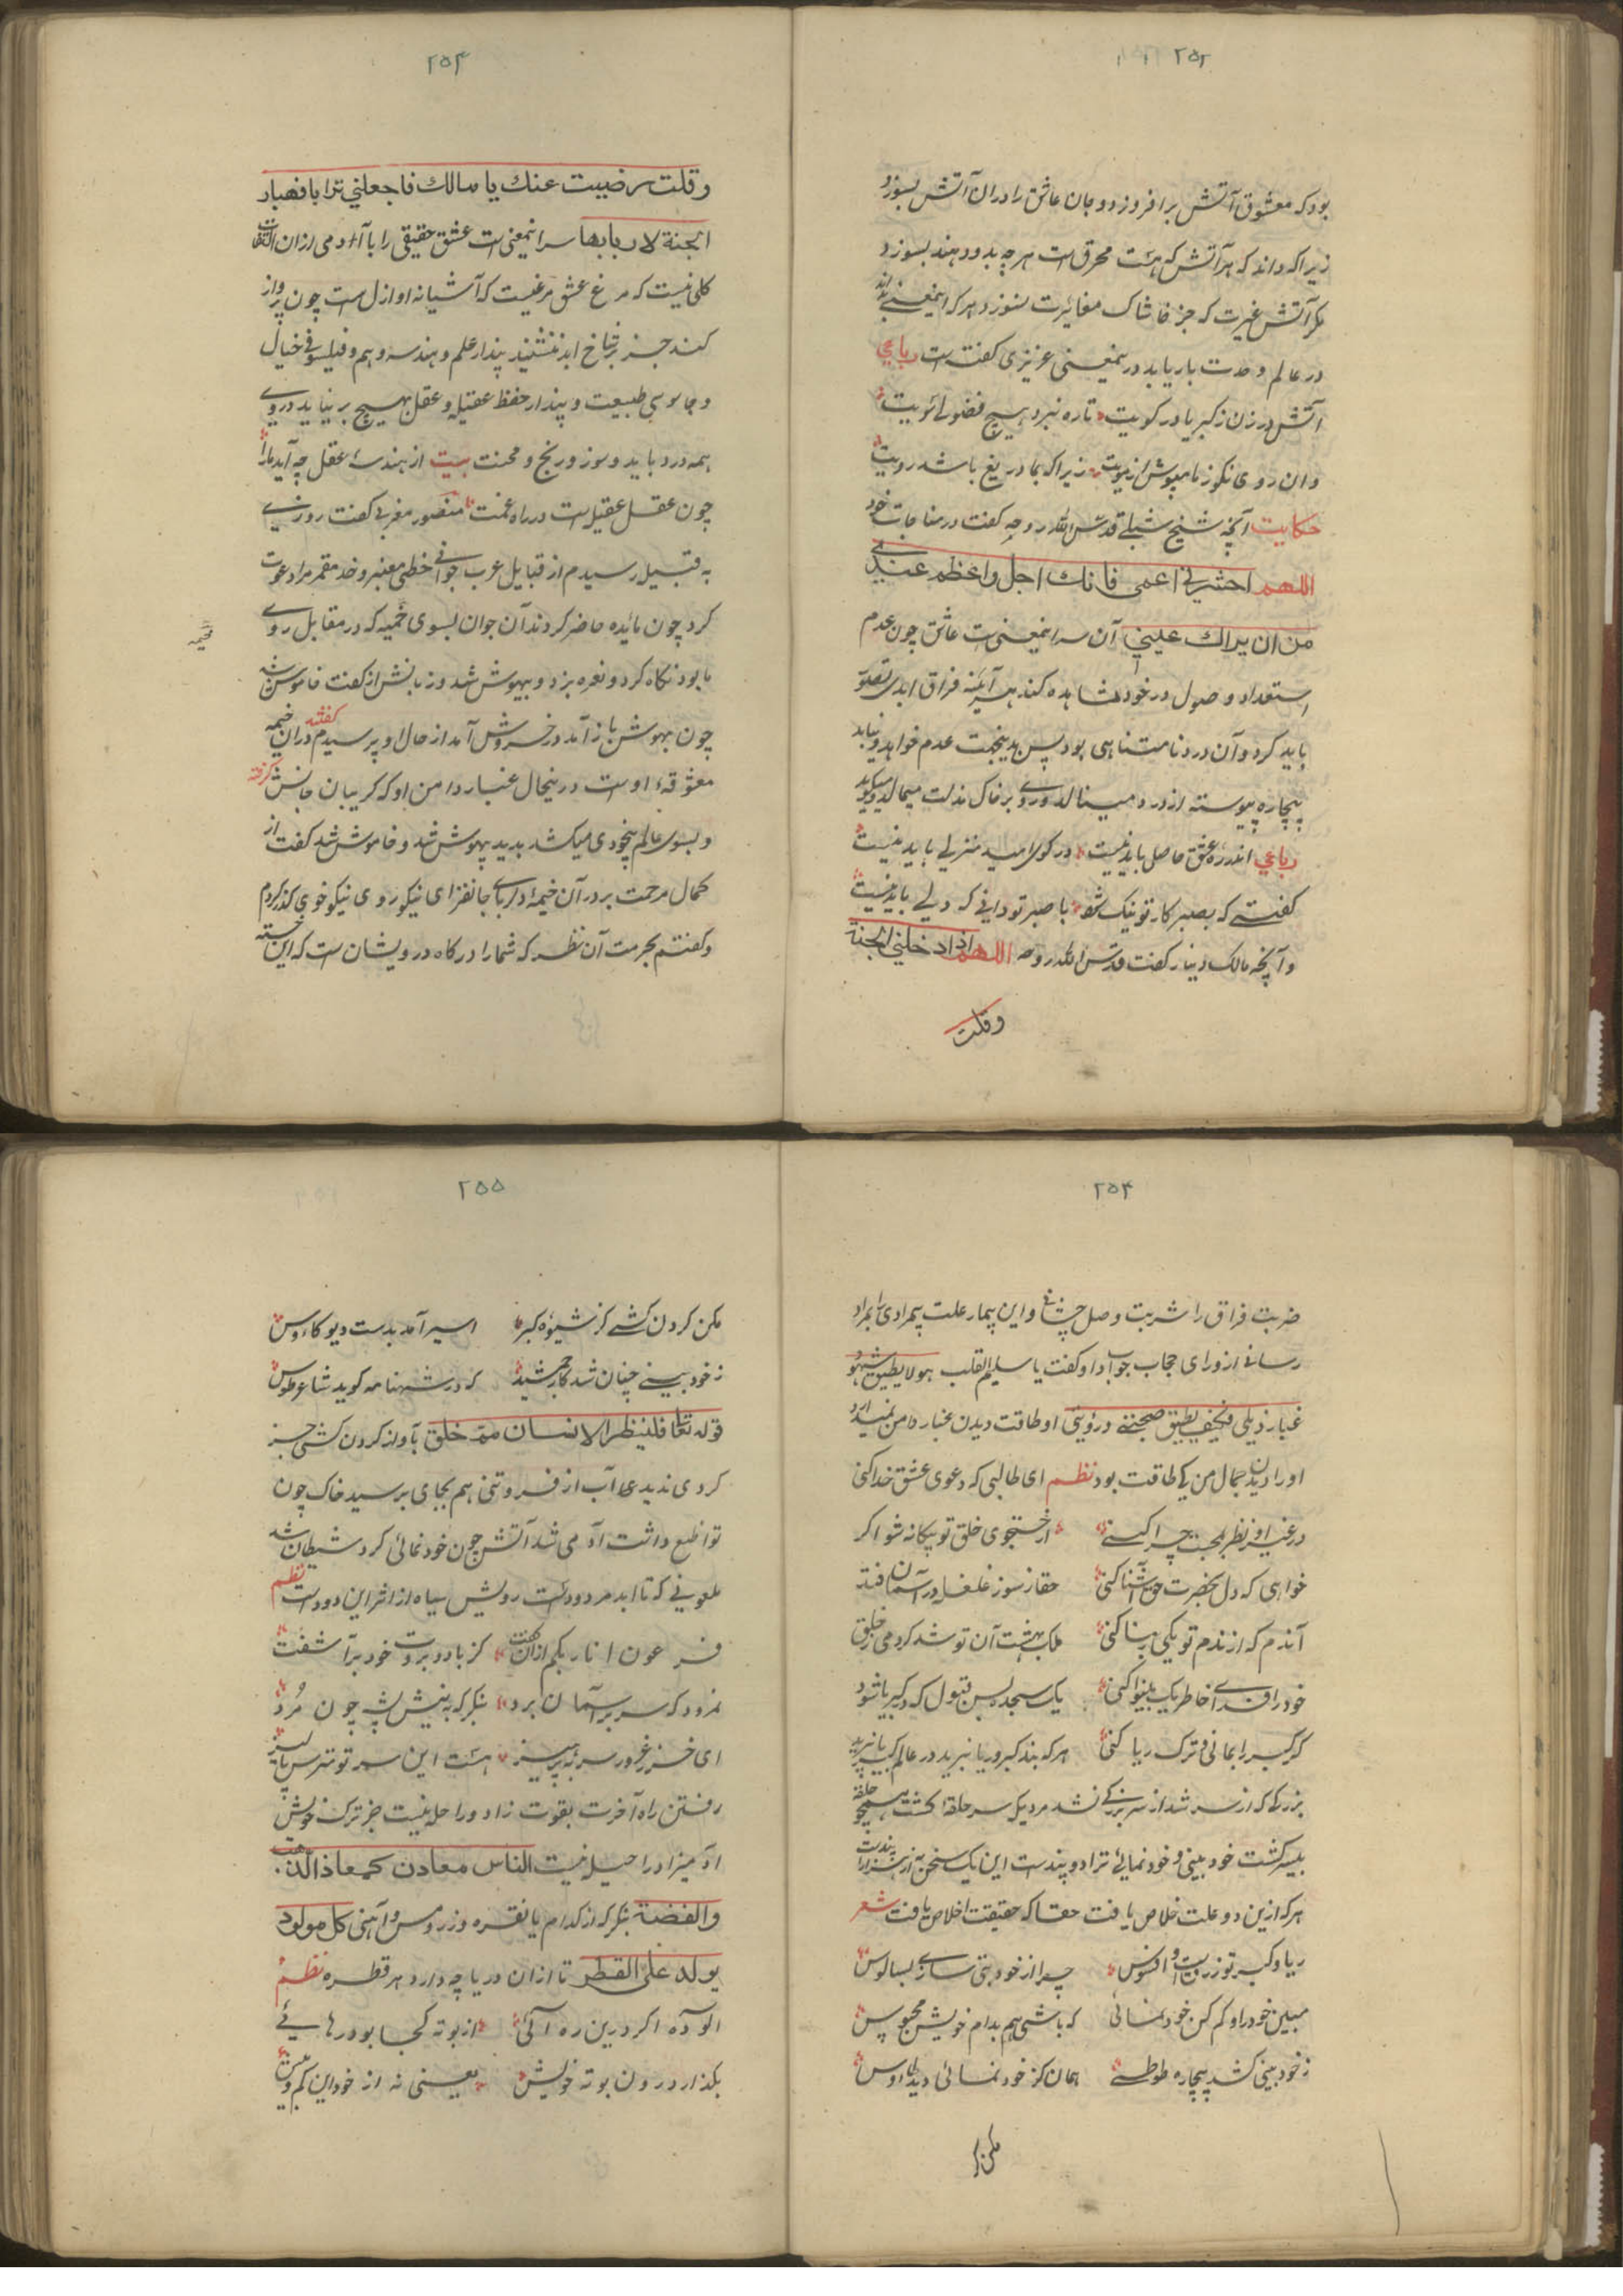 ۲۵۲
بود که معشوق آتش برافروزد و جان عاشق را در ان آتش بسوزد
زیرا که داند که هر آتش که هست محرق است هر چه بدو دهند بسوزد
مکر آتش غیرت که جز خاشاک مغائرت نسوزد و هر که اینمعنی بداند
در عالم وحدت بار یابد درینمعنی عزیزی کفته است رباعی
آتش در زن ز کبریا در کویت تا ره نبرد هیچ فضولی سویت
وان روی نکو ز ما مپوش از مویت زیرا که بما دریغ باشد رویت
حکایت آنچه شیخ شبلی قدس الله روحه کفت در مناجات خود
اللهم احشرنی اعمی فانك اجل واعظم عندی
من ان یراك عینی آن سر اینمعنی است عاشق چون عدم
استعداد وصول در خود مشاهده کند هر آینه فراق ابدی تصور
باید کرد و آن درد نامتناهی بود پس بدینجهت عدم خواهد و نیابد
بیچاره پیوسته از درد مینالد و روی بر خاک مذلت میمالد و میکوید
رباعی اندر ره عشق حاصلی باید نیست در کوی امید منزلی باید نیست
کفتی که بصبر کار تو نیک شود با صبر تو دانی که دلی باید نیست
و آنچه مالک دینار کفت قدس الله روحه اللهم اذا ادخلنی الجنة
وقلت
۲۵۳
وقلت رضیت عنك یا مالك فاجعلنی ترابا فهبار
الجنة لاربابها سر اینمعنی است عشق حقیقی را با آدمی ازان التفات
کلی نیست که مرغ عشق مرغیست که آشیانه او ازل است چون پرواز
کند جز بر شاخ ابد ننشیند پندار علم و هندسه و هم و فیلسوفی خیال
و جاسوسی طبیعت و پندار حفظ عقیله و عقل بهیچ بر نیاید در وی
همه درد باید و سوز و رنج و محنت بیت از هندسهٔ عقل چه آید ما را
چون عقل عقیله است در راه غمت منصور مغربی کفت روزی
به قبیله رسیدم از قبایل عرب جوانی خطی معنبر و خد مقمر مرا دعوت
کرد چون مائده حاضر کردند آن جوان بسوی خمیه که در مقابل روی
خیمه
ما بود نکاه کرد و نعره بزد و بیهوش شد و زبانش از کفت خاموش شد
چون بهوش باز آمد در خروش آمد از حال او پرسیدم کفتند در ان خیمه
معشوقهٔ اوست درینحال غبار دامن او که کریبان جانش کرفته
و بسوی عالم بیخودی میکشد بدید بیهوش شد و خاموش شد کفت از
کمال مرحمت بر در آن خیمهٔ دلربای جانفزای نیکو روی نیکو خوی کذر کردم
و کفتم بحرمت آن نظر که شما را در کاه درویشان است که این خسته
۲۵۴
ضربت فراق را شربت وصل چشانی و این بیمار علت بیمرادی را بمراد
رسانی از ورای حجاب جواب داد و کفت یا سلیم القلب هو لا یطیق شهود
غبار ذیلی فکیف یطیق صحبتی و رؤیتی او طاقت دیدن غبار دامن نمیدارد
او را دیدن جمال من کی طاقت بود نظم ای طالبی که دعوی عشق خدا کنی
در غیر او نظر بمحبت چرا کنی از جستجوی خلق تو بیکانه شو اکر
خواهی که دل بحضرت حق آشنا کنی حقا ز سوز غلغله در آسمان فتد
آندم که از ندم تو یکی ربنا کنی ملک بهشت آن تو شد کر دمی ز خلق
خود را فدای خاطر یک بینوا کنی یک سجده بس قبول که در کبریا شود
کر کبر را بمانی و ترک ریا کنی هر که بند کبر و ریا نبرید در عالم کبریا نپرید
بزرکی که از سر شد از سر بزرکی نشد مرد یک سر حلقه کشت همچو حلقه
بی سر کشت خود بینی و خود نمائی ترا دو بند است این یک سخن از هزار پندت
هر که ازین دو علت خلاص یافت حقا که حقیقت اخلاص یافت شعر
ریا و کبر تو زرق است و افسوس چرا از خود بتی سازی بسالوس
مبین خود را و کم کن خود نمائی که باشی هم بدام خویش محبوس
ز خود بینی کشد بیچاره طوطی همان کز خود نمائی دید طاوس
مکن
۲۵۵
مکن کردن کشی کز شیوهٔ کبر اسیر آمد بدست دیو کاوس
ز خود بینی چنان شد کار جمشید که در شهنامه کوید شاعر طوس
قوله تعالی فلینظر الانسان مم خلق باد از کردن کشی جز
کردی ندیدی آب از فروتنی هم بجای بر رسید خاک چون
تواضع داشت آدمی شد آتش چون خود نمائی کرد شیطان شد
ملعونی که تا ابد مردود است رویش سیاه از اثر این دود است نظم
فرعون انا ربکم ازان کفت کز باد و بروت خود برآشفت
نمرود که سر بر آسمان برد بنکر که به نیش پشه چون مُرد
ای خر ز غرور سر بپرهیز هست این سر تو مترس پالیز
رفتن راه آخرت بقوت زاد و راحله نیست جز ترک خویش
آدمیزاد را حیله نیست الناس معادن کمعادن الذهب
والفضة بنکر که از کدام یا نقره و زر و مس و آهنی کل مولود
یولد علی الفطر تا ازان دریا چه دارد هر قطره نظم
آلوده اکر درین ره آئی از بوته کجا بود رهائی
بکذار درون بوته خویش یعنی نه از خود این کم و بیش